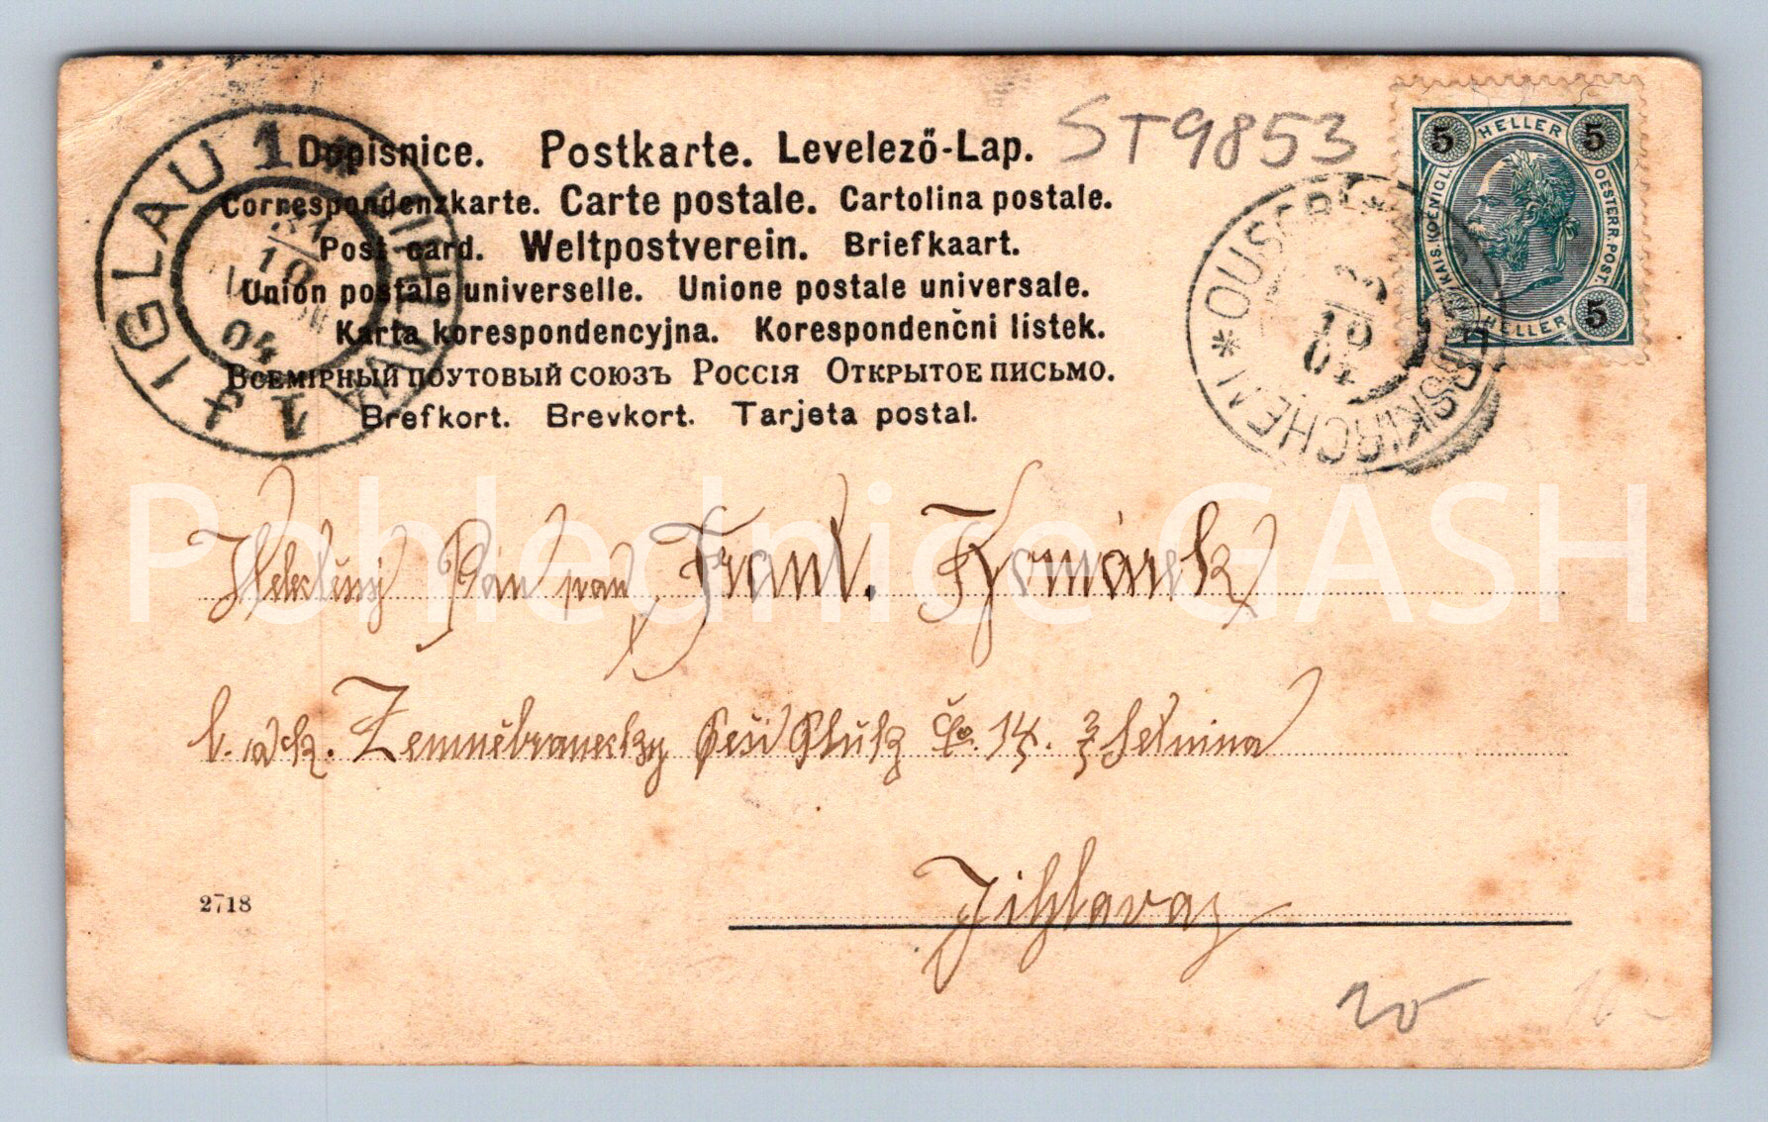 Dopisnice. Postkarte. Levelező-Lap. ST9853
Correspondenzkarte. Carte postale. Cartolina postale.
Post card. Weltpostverein. Briefkaart.
Union postale universelle. Unione postale universale.
Karta korespondencyjna. Korespondenčni listek.
Всемірный поутовый союзъ Россія Открытое письмо.
Brefkort. Brevkort. Tarjeta postal.
IGLAU 1
10
04
JIHLAVA
1
OUSSERČ
10
04
UNTERSKIRCHEN
5 HELLER 5
KAIS. KOENIGL.
OESTERR. POST.
HELLER 5
Pohlednice GASH
Pán pan Frant. Komárek
Zemněbranecky Pěší Plúk čís. 14. 3 Setnina
Jihlava
2718
20